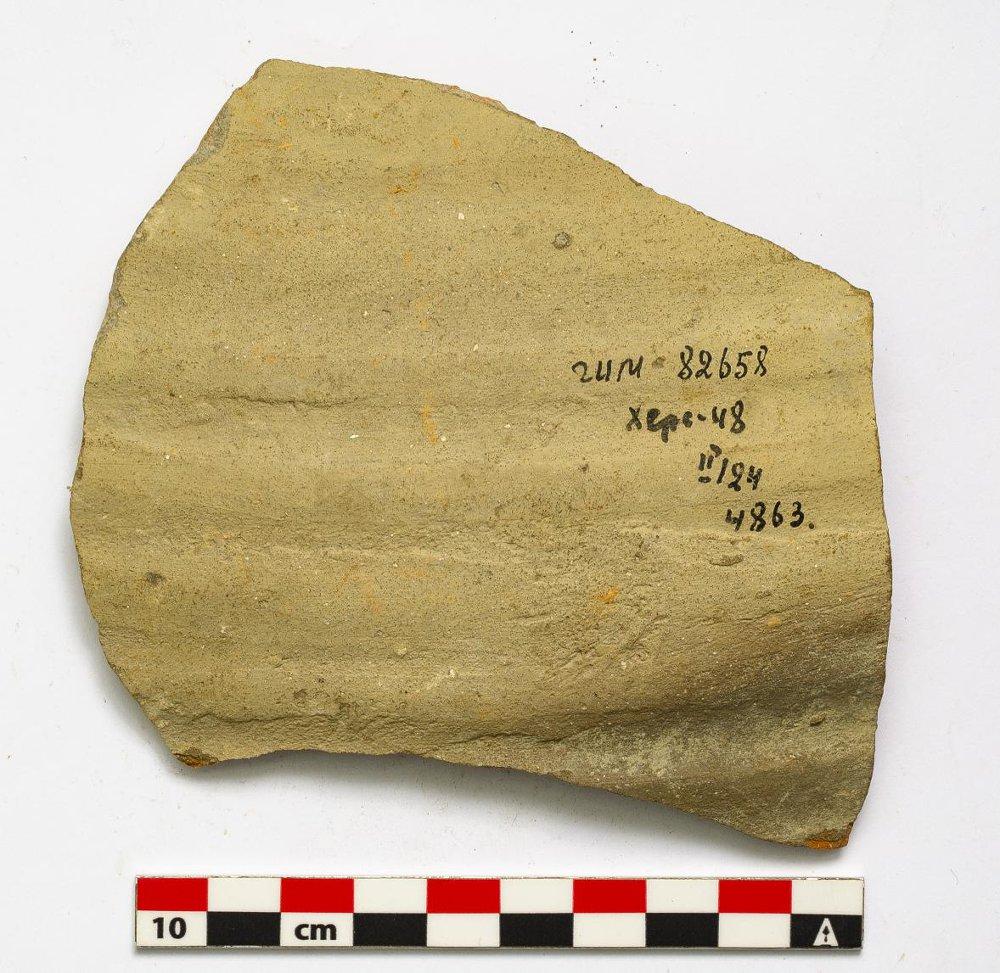 гим 82658
Херс-48
II/124
4863.
10 cm